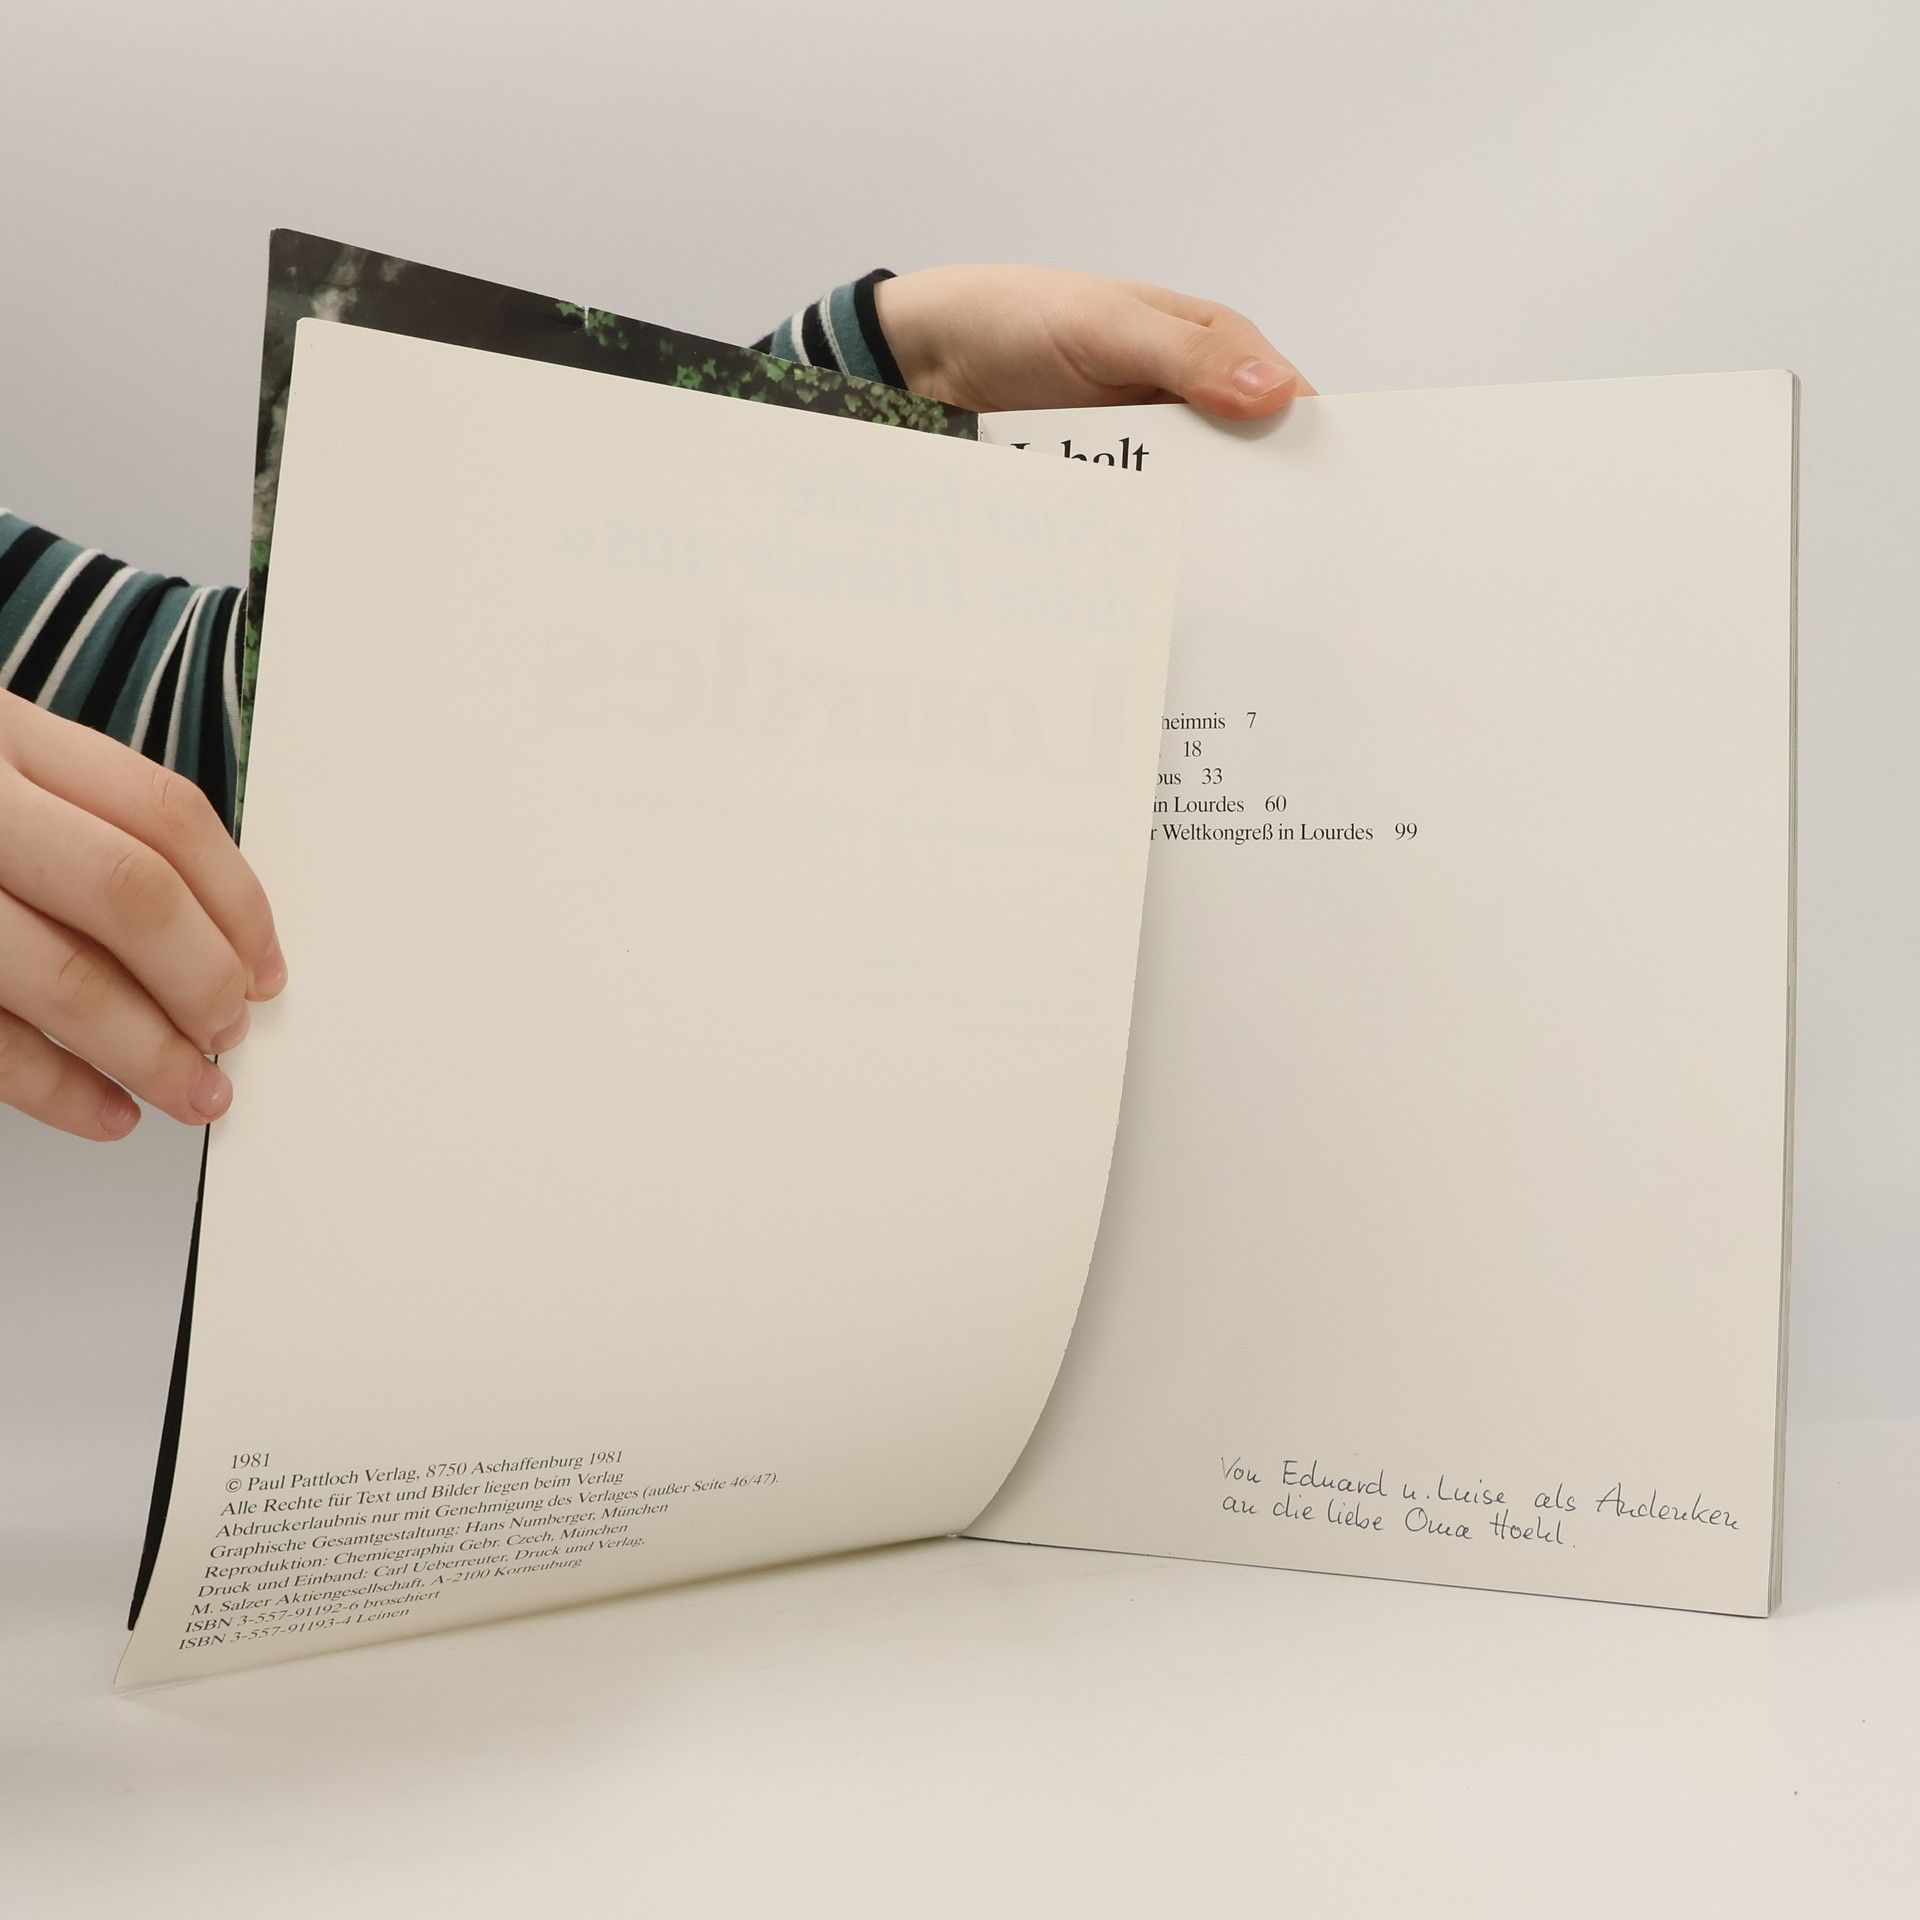 1981
© Paul Pattloch Verlag, 8750 Aschaffenburg 1981
Alle Rechte für Text und Bilder liegen beim Verlag
Abdruckerlaubnis nur mit Genehmigung des Verlages (außer Seite 46/47).
Graphische Gesamtgestaltung: Hans Numberger, München
Reproduktion: Chemiegraphia Gebr. Czech, München
Druck und Einband: Carl Ueberreuter, Druck und Verlag,
M. Salzer Aktiengesellschaft, A-2100 Korneuburg
ISBN 3-557-91192-6 broschiert
ISBN 3-557-91193-4 Leinen
Inhalt
heimnis 7
18
ous 33
in Lourdes 60
r Weltkongreß in Lourdes 99
Von Eduard u. Luise als Andenken
an die liebe Oma Hoehl.